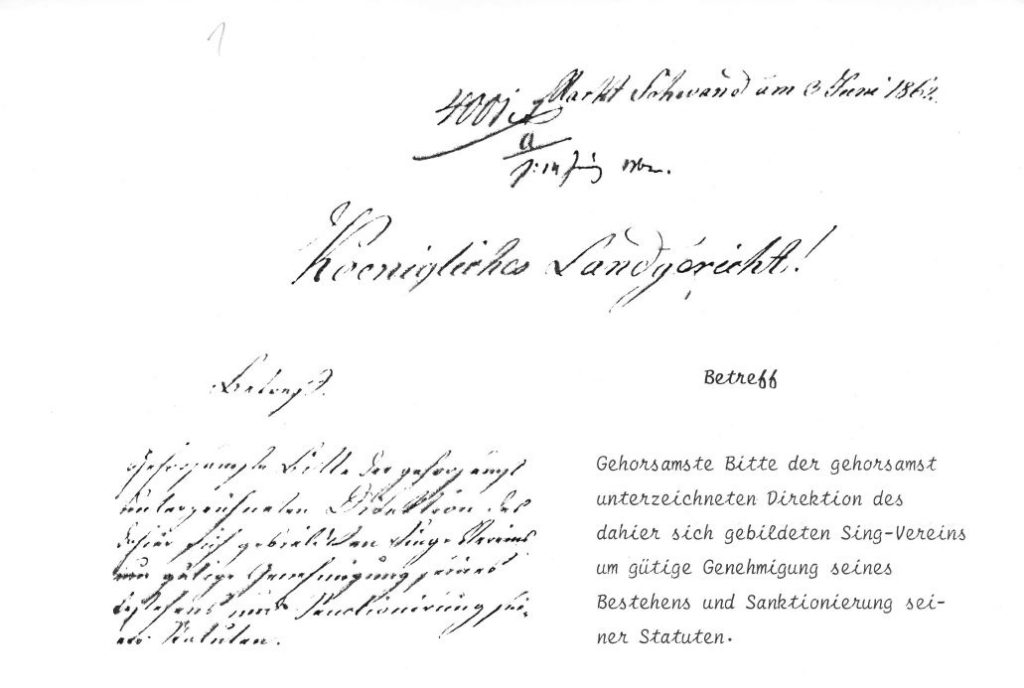 1
Markt Schwand am 3 Juni 1862.
4001
a
Koenigliches Landgericht!
Betreff.
Gehorsamste Bitte der gehorsamst
unterzeichneten Direktion des
dahier sich gebildeten Singe Vereins
um gütige Genehmigung seines
Bestehens und Sanctionirung sei-
ner Statuten.
Betreff
Gehorsamste Bitte der gehorsamst
unterzeichneten Direktion des
dahier sich gebildeten Sing-Vereins
um gütige Genehmigung seines
Bestehens und Sanktionierung sei-
ner Statuten.